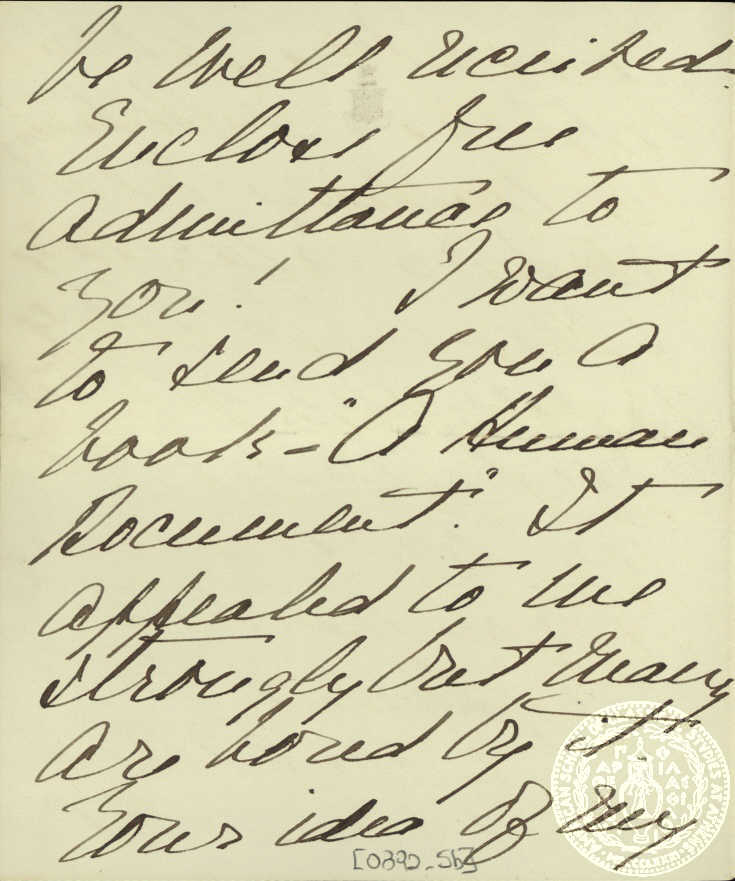 be well received
Enclose free
admittance to
you! I want
to send you a
book - "A Human
Document." It
appealed to me
strongly but many
are bored by it.
Your idea of my